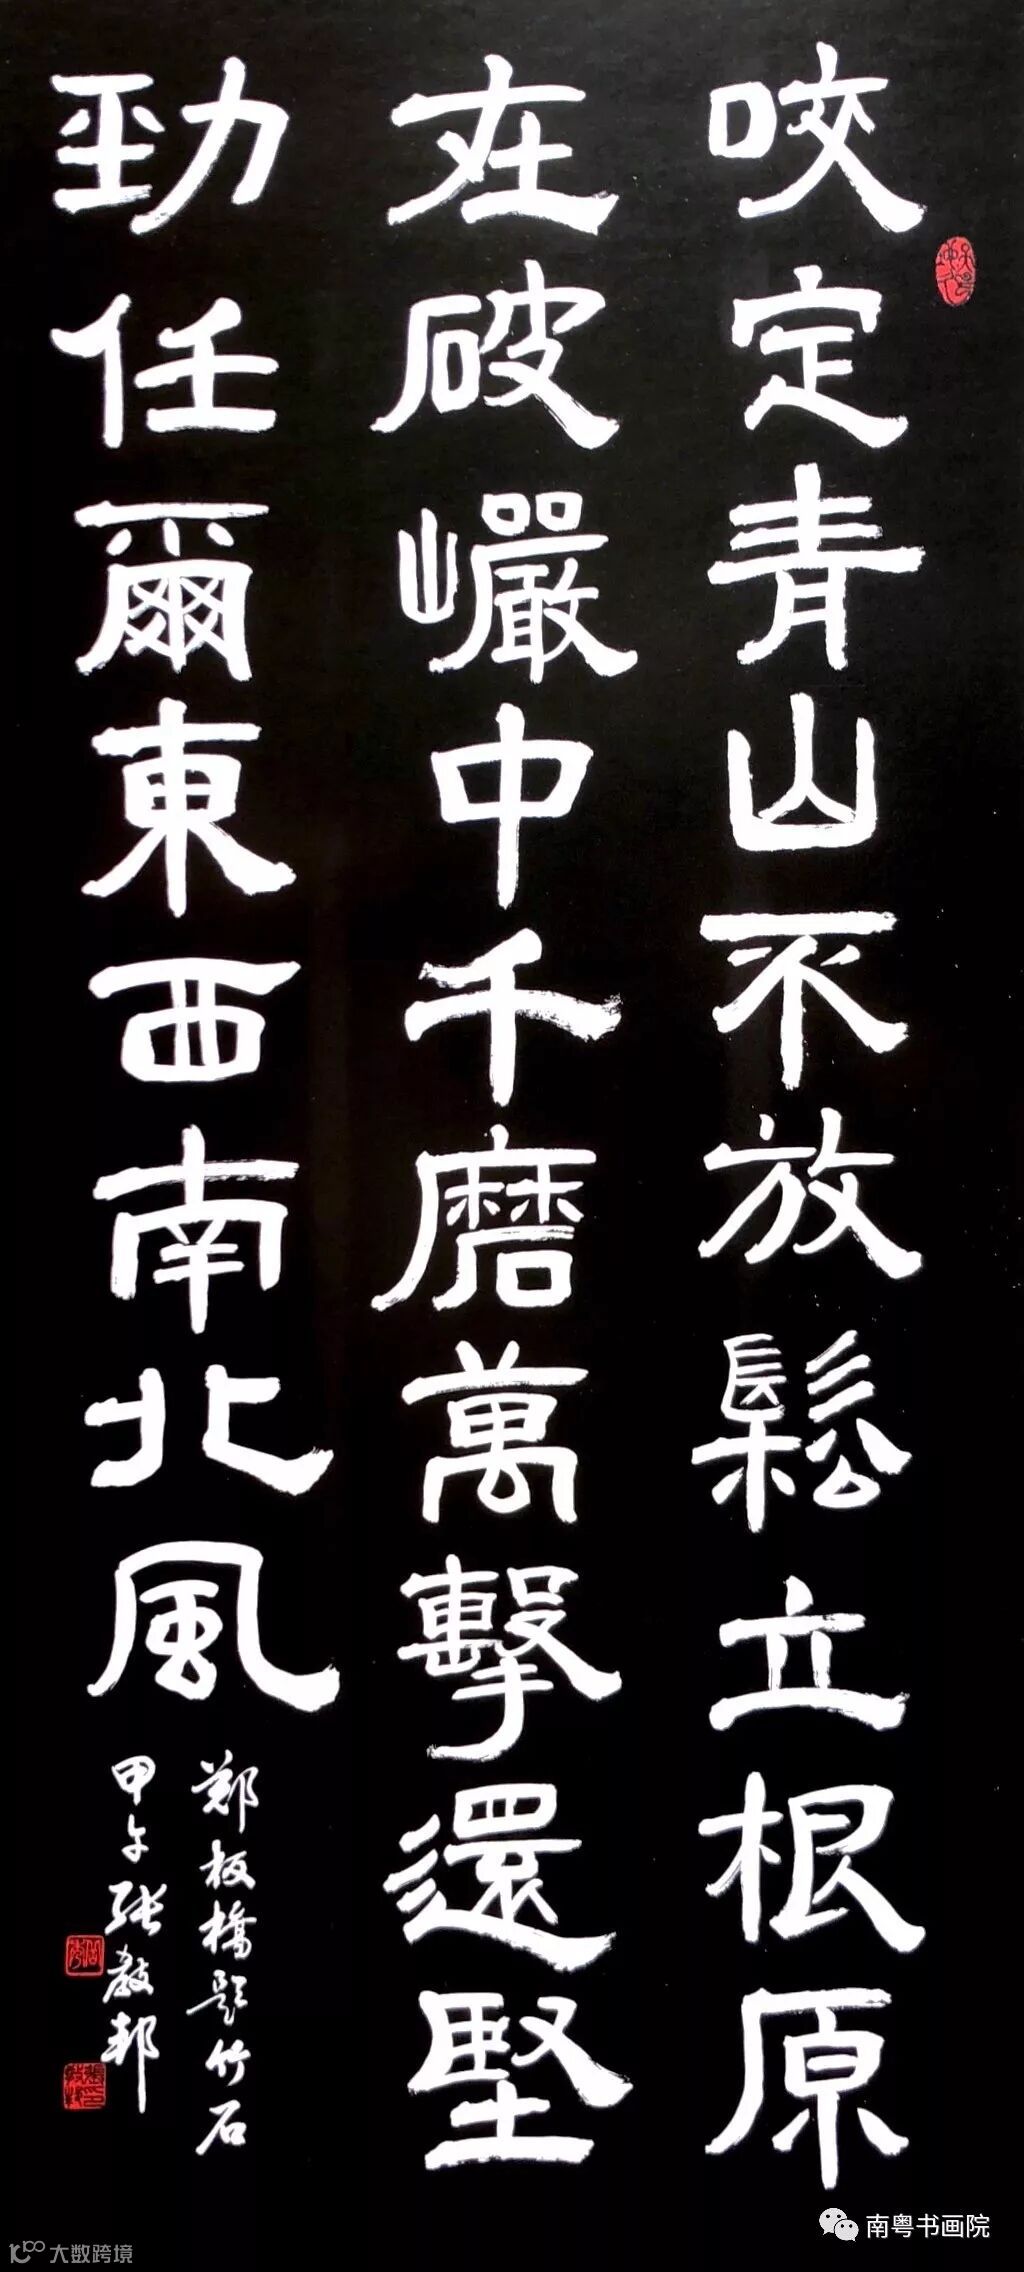 咬定青山不放鬆立根原
在破巖中千磨萬擊還堅
勁任爾東西南北風
鄭板橋題竹石
甲午張敎邦
南粤书画院
大数跨境